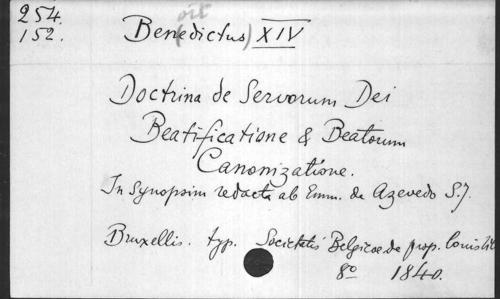 254.
152.
Ben(edictus) XIV
oit
Doctrina de Servorum Dei
Beatificatione & Beatorum
Canonizatione.
In Synopsim redacta ab Emm. de Azevedo S.J.
Bruxellis. typ. Societatis Belgicae de prop.
8o 1840.